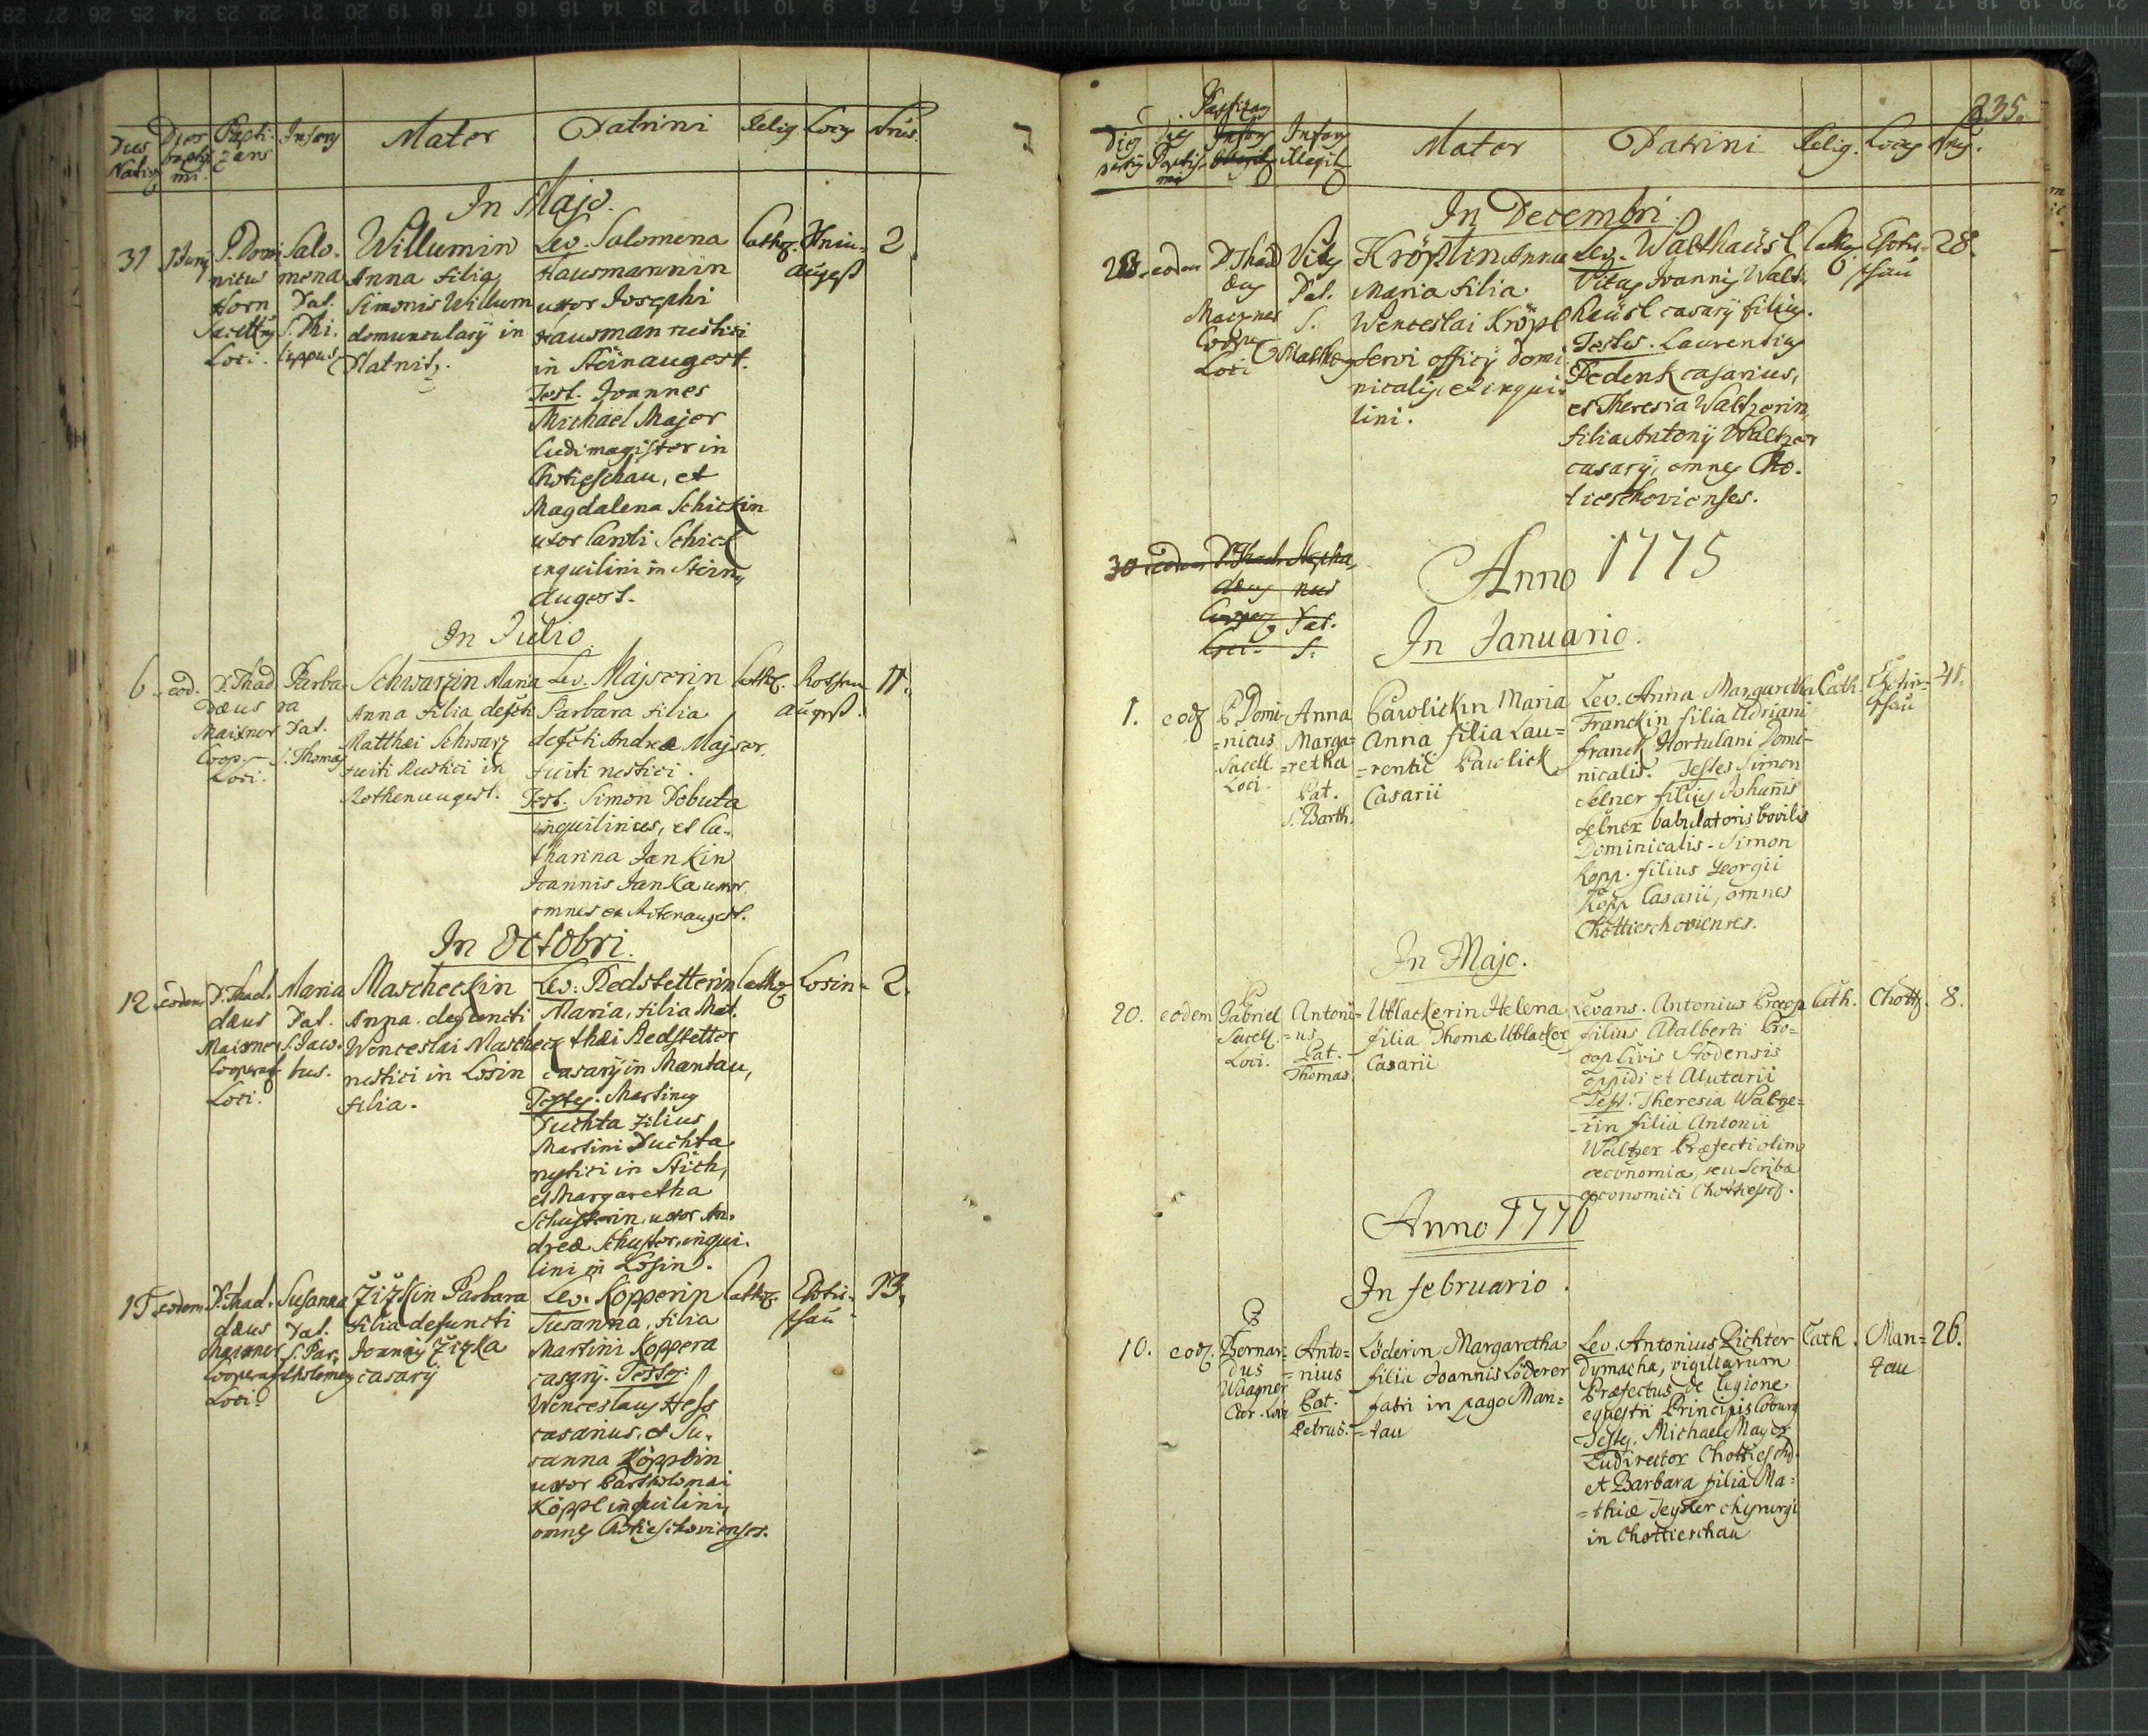 Mater
Patrini
Relig.
In Majo.
31
P. Domi
nicus
Horn
Loci.
Salo-
mena
Pat.
S. Phi-
lippus
Willumin
Anna filia
Simonis Willum
domuncularij in
Lev. Salomena
Hausmannin
uxor Josephi
Hausman rustici
in Steinaugest.
Test. Joannes
Michael Majer
Ludimagister in
Chotieschau, et
Magdalena Schickin
uxor Caroli Schick
inquilini in Stein
augest.
2
In Julio
6.
eod.
D. Thad
dæus
Maixner
Coop.
Loci.
Barba-
ra
Pat.
S. Thomas
Schwarzin Maria
Anna filia defcti
Matthæi Schwarz
fuiti Rustici in
Rothenaugest.
Lev. Majserin
Barbara filia
defcti Andreæ Majser
fuiti rustici.
Test. Simon Dobuta
inquilinus, et Ca-
tharina Jankin
Joannis Janka uxor
11.
In Octobri.
12
eodem
D. Thad.
dæus
Maixner
Cooperat.
Loci.
Maria
Pat.
S. Jaco-
bus.
Mascheckin
Anna defuncti
Wenceslai Mascheck
rustici in Losin
filia.
Lev. Redstetterin
Maria, filia Mat.
thæi Redstetter
casarij in Mantau,
Testes. Martinus
Duchta filius
Martini Duchta
rustici in Stich,
et Margaretha
Schusterin uxor An-
dreæ Schuster, inqui-
lini in Losin.
Losin
2.
15
eodem
D. Thad.
dæus
Maixner
Cooperat.
Loci.
Susanna
Pat.
S. Bar-
tholomeus
Žižkin Barbara
filia defuncti
Joannis Žizka
casarij
Lev. Kopperin
Susanna, filia
Martini Koppera
casarij. Testes.
Wenceslaus Hess
casarius, et Su-
sanna Köpplin
uxor Bartholomæi
Köppl inquilini,
omnes Chotieschovienses.
13.
235.
Mater
Patrini
Relig.
In Decembri.
28.
eodem
D. Thad
dæus
Maixner
Loci
Vitus
Pat.
S.
Mathæus
Kröplin Anna
Maria filia
Wenceslai Kröpl
servi officij domi-
nicalis, et inqui-
lini.
Lev. Walthaüsl
Vitus Joannis Walt-
haüsl casarij filius.
Testes. Laurentius
Pedenk casarius,
et Theresia Waltzerin
filia Antonij Waltzer
casarij, omnes Cho-
tieschovienses.
28.
30
eodem
Stepha
nus
Pat.
S.
Anno 1775
In Januario.
1.
eod
P Domi-
=nicus
Sacell
Loci.
Anna
Marga=
=retha
Pat.
S. Barth.
Pawlickin Maria
Anna filia Lau=
=rentii Pawlick
Casarii
Lev. Anna Margaretha
Franckin filia Adriani
franck Hortulani Domi-
nicalis. Testes Simon
Selner filius Johannis
Selner babulatoris bovilis
Dominicalis - Simon
Kopp. filius Georgii
Kopp Casarii, omnes
Chottieschovienses.
Cath.
41.
In Majo.
20.
eodem
P
Gabriel
Sacell.
Loci.
Antoni=
=us
Pat.
Thomas.
Ublackerin Helena
filia Thomæ Ublacker
Casarii
Levans. Antonius Procop
filius Adalberti Pro=
cop Civis Stodensis
oppidi et Alutarii
Test. Theresia Waltze=
=rin filia Antonii
Waltzer Præfecti olim
œconomiæ, seu Scribæ
œconomici Chottiesch.
Cath.
Chott.
8.
Anno 1776
In februario.
10.
eod.
P
Bernar=
dus
Wagner
Anto=
=nius
Pat.
Petrus.
Löderin Margaretha
filia Joannis Löderer
fabri in pago Man=
=tau
Lev. Antonius Richter
Dymacha, vigiliarum
Præfectus de legione
equestri Principis Coburg
Testes. Michael Mayer
Ludirector Chottiesch.
et Barbara filia Ma=
=thiæ Jeysler chyrurgi
in Chottieschau
Cath.
Man=
tau
26.